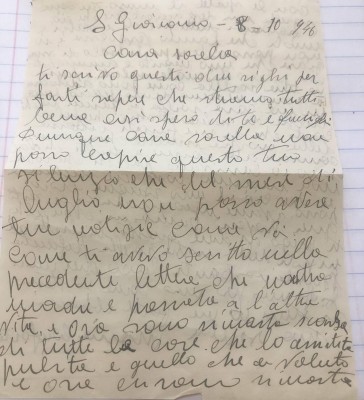 S Giovanni - 8 = 10 946
Cara sorella
ti scrivo questi due righi per
farti sapere che stiamo tutti
bene cosi spero di te e
Dunque cara sorella non
posso capire questo tuo
silenzio che dal mese di
luglio non posso avere
tue notizie come
come ti avevo scritto nella
precedente lettera che nostra
madre e passata a l'altra
vita. e ora sono rimasta
di tutte la cose che lo
pulita e quello che a voluto
e ora rimasta